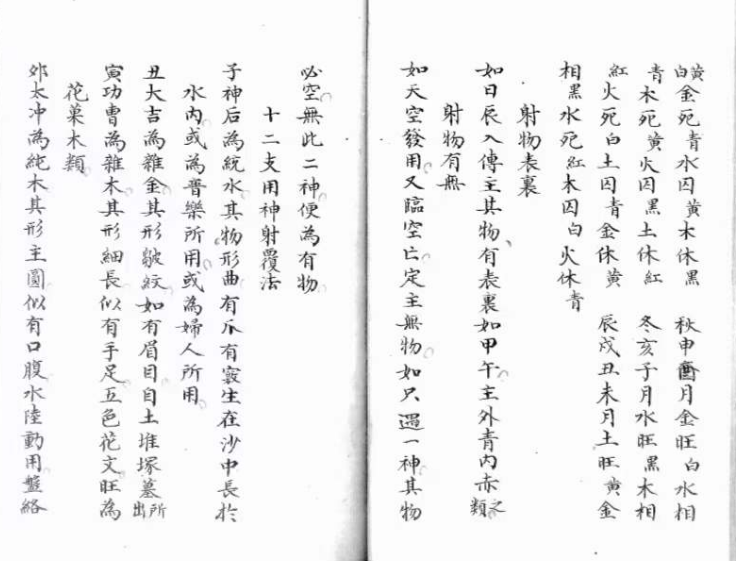 黃白金死青水囚黃木休黑　秋申酉月金旺白水相
青木死黃火囚黑土休紅　冬亥子月水旺黑木相
紅火死白土囚青金休黃　辰戌丑未月土旺黃金
相黑水死紅木囚白火休青
射物表裏
如日辰入傳主其物有表裏如甲午主外青內赤之類
射物有無
如天空發用又臨空亡定主無物如只遇一神其物
必空無此二神便為有物
十二支用神射覆法
子神后為純水其物形曲有爪有竅生在沙中長於
水內或為音樂所用或為婦人所用
丑大吉為雜金其形皺紋如有眉目自土堆塚墓所出
寅功曹為雜木其形細長似有手足五色花文旺為
花菓木類
夘太冲為純木其形主圓似有口腹水陸動用盤絡